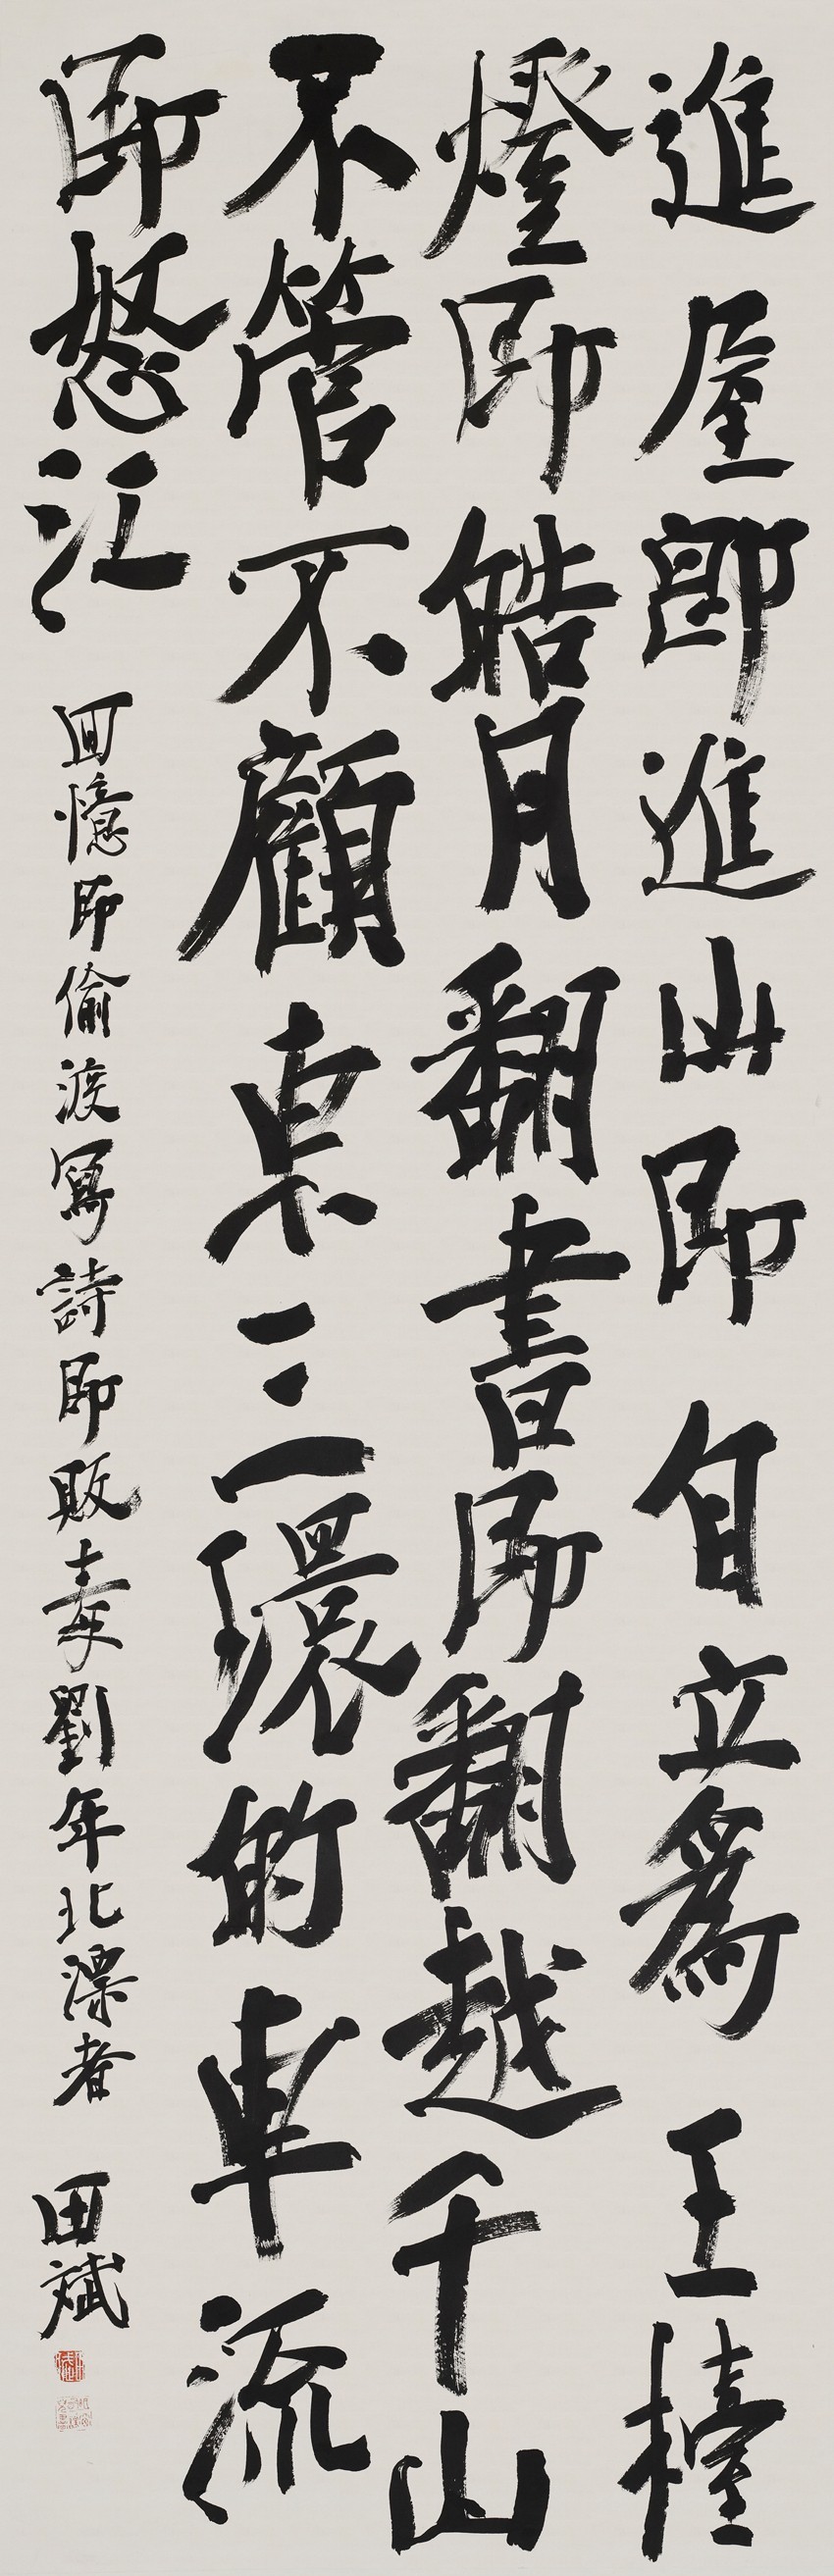 進屋即進山即自立為王檯
燈即皓月翻書即翻越千山
不管不顧東三環的車流
即怒江
回憶即偷渡寫詩即販毒劉年北漂者
田斌